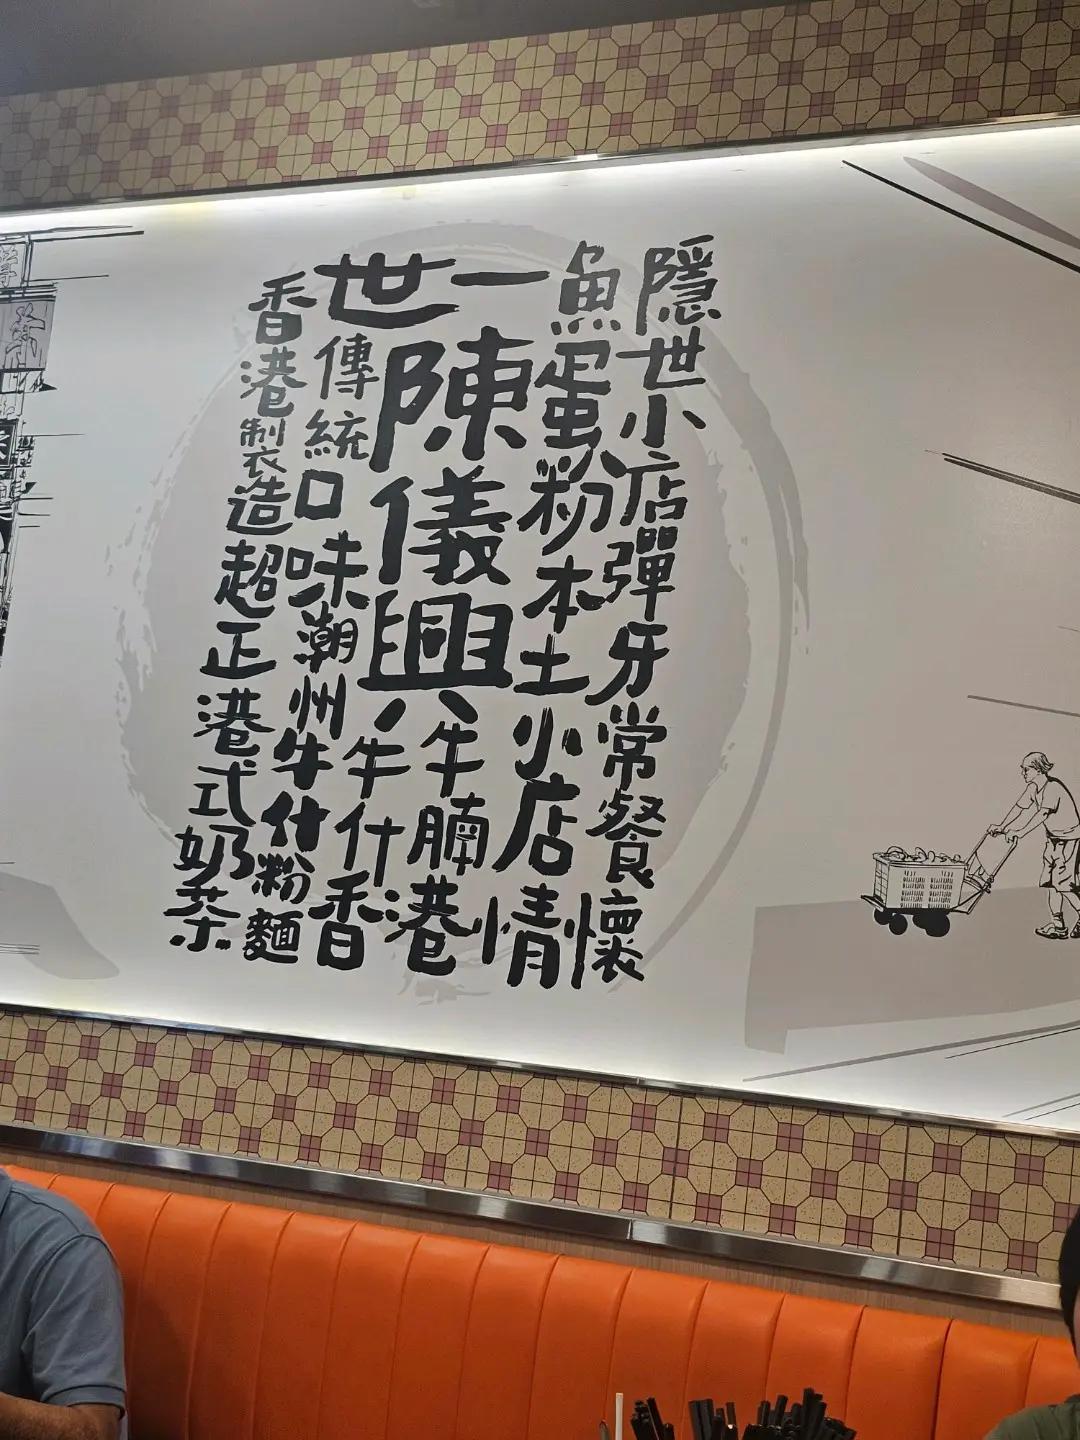 隱世小店彈牙常餐懷
魚蛋粉本土小店情
一陳儀興牛腩港
世傳統口味潮州牛什粉麵
牛什香
香港製造超正港式奶茶